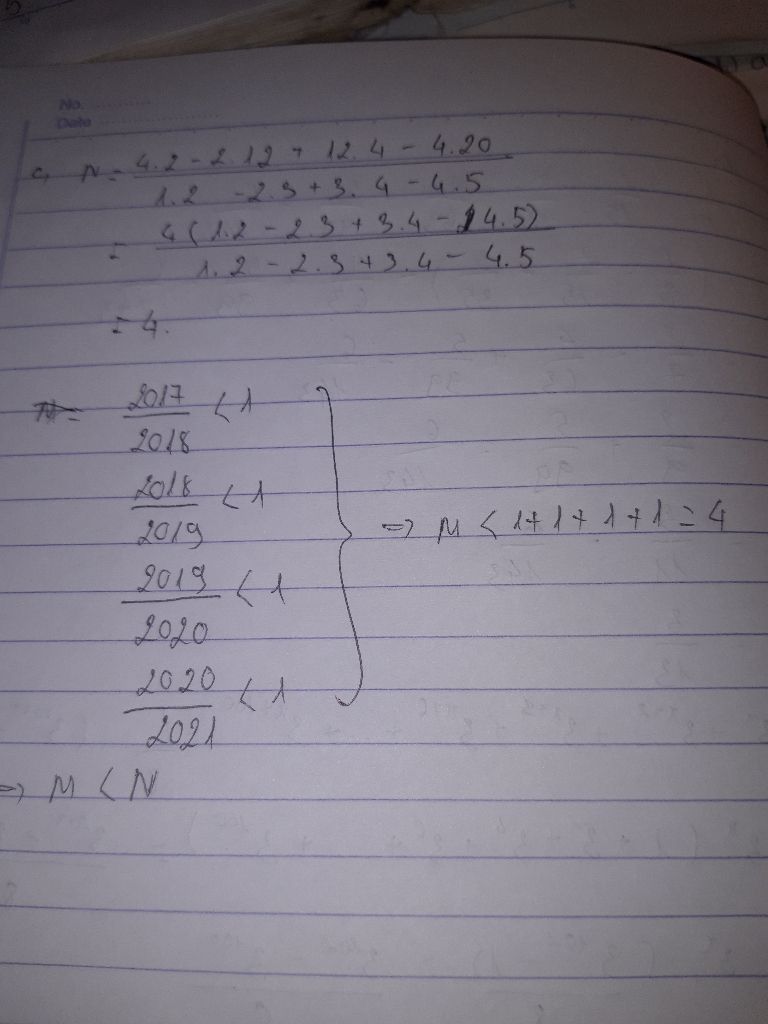 No. ............
Date ............
c, N = 4.2 - 2.12 + 12.4 - 4.20 / 1.2 - 2.3 + 3.4 - 4.5
= 4(1.2 - 2.3 + 3.4 - 4.5) / 1.2 - 2.3 + 3.4 - 4.5
= 4.
2017/2018 < 1
2018/2019 < 1
2019/2020 < 1
2020/2021 < 1
=> M < 1+1+1+1 = 4
=> M < N